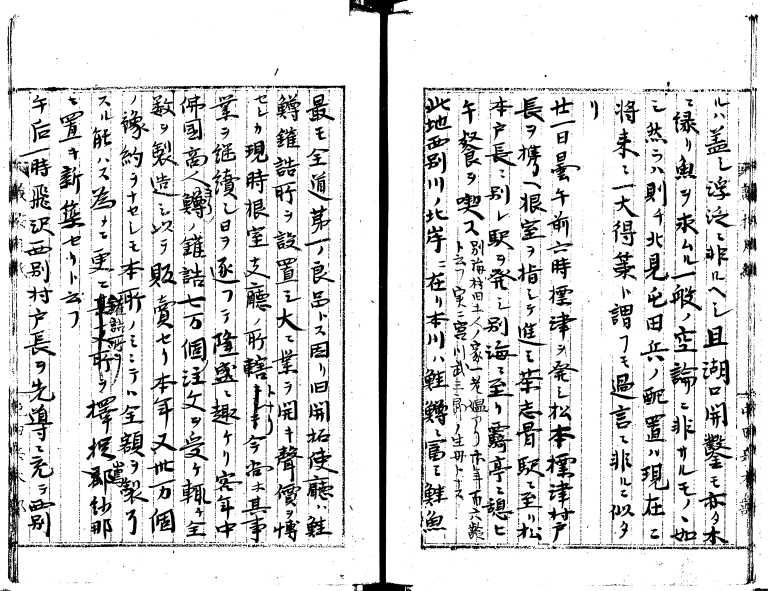 ルハ蓋シ浮泛ニ非ルヘシ且湖口開鑿モ亦タ木
ニ縁リ魚ヲ求ムル一般ノ空論ニ非サルモノヽ如
シ然ラハ則チ北見屯田兵ノ配置ハ現在ニ
将来ニ一大得策ト謂フモ過言ニ非ルニ似タ
リ
廿一日曇午前六時標津ヲ発シ松本標津村戸
長ヲ携ヘ根室ヲ指シテ進ミ茶志骨駅ニ至リ松
本戸長ニ別レ駅ヲ発シ別海ニ至リ霧亭ニ憩ヒ
午餐ヲ喫ス
此地西別川ノ北岸ニ在リ本川ハ鮭鱒ニ富ミ鮭魚
最モ全道第一ノ良品トス因リ旧開拓使廳ハ鮭
鱒鑵詰所ヲ設置シ大ニ業ヲ開キ聲價ヲ博
セシカ現時根室支廳ノ所轄トナリ今尚ホ其事
業ヲ継續シ日ヲ逐フテ隆盛ニ趣ケリ客年中
佛国商人鱒ノ鑵詰七万個注文ヲ受ケ輙チ全
数ヲ製造シ以テ販賣セリ本年又卅万個
ノ豫約ヲナセシモ本所ノミニテハ全額ヲ製了
スル能ハス為メニ更ニ鑵詰所ヲ擇捉郡紗那
ニ置キ新築セリト云フ
午后一時飛沢西別村戸長ヲ先導ニ充テ西別